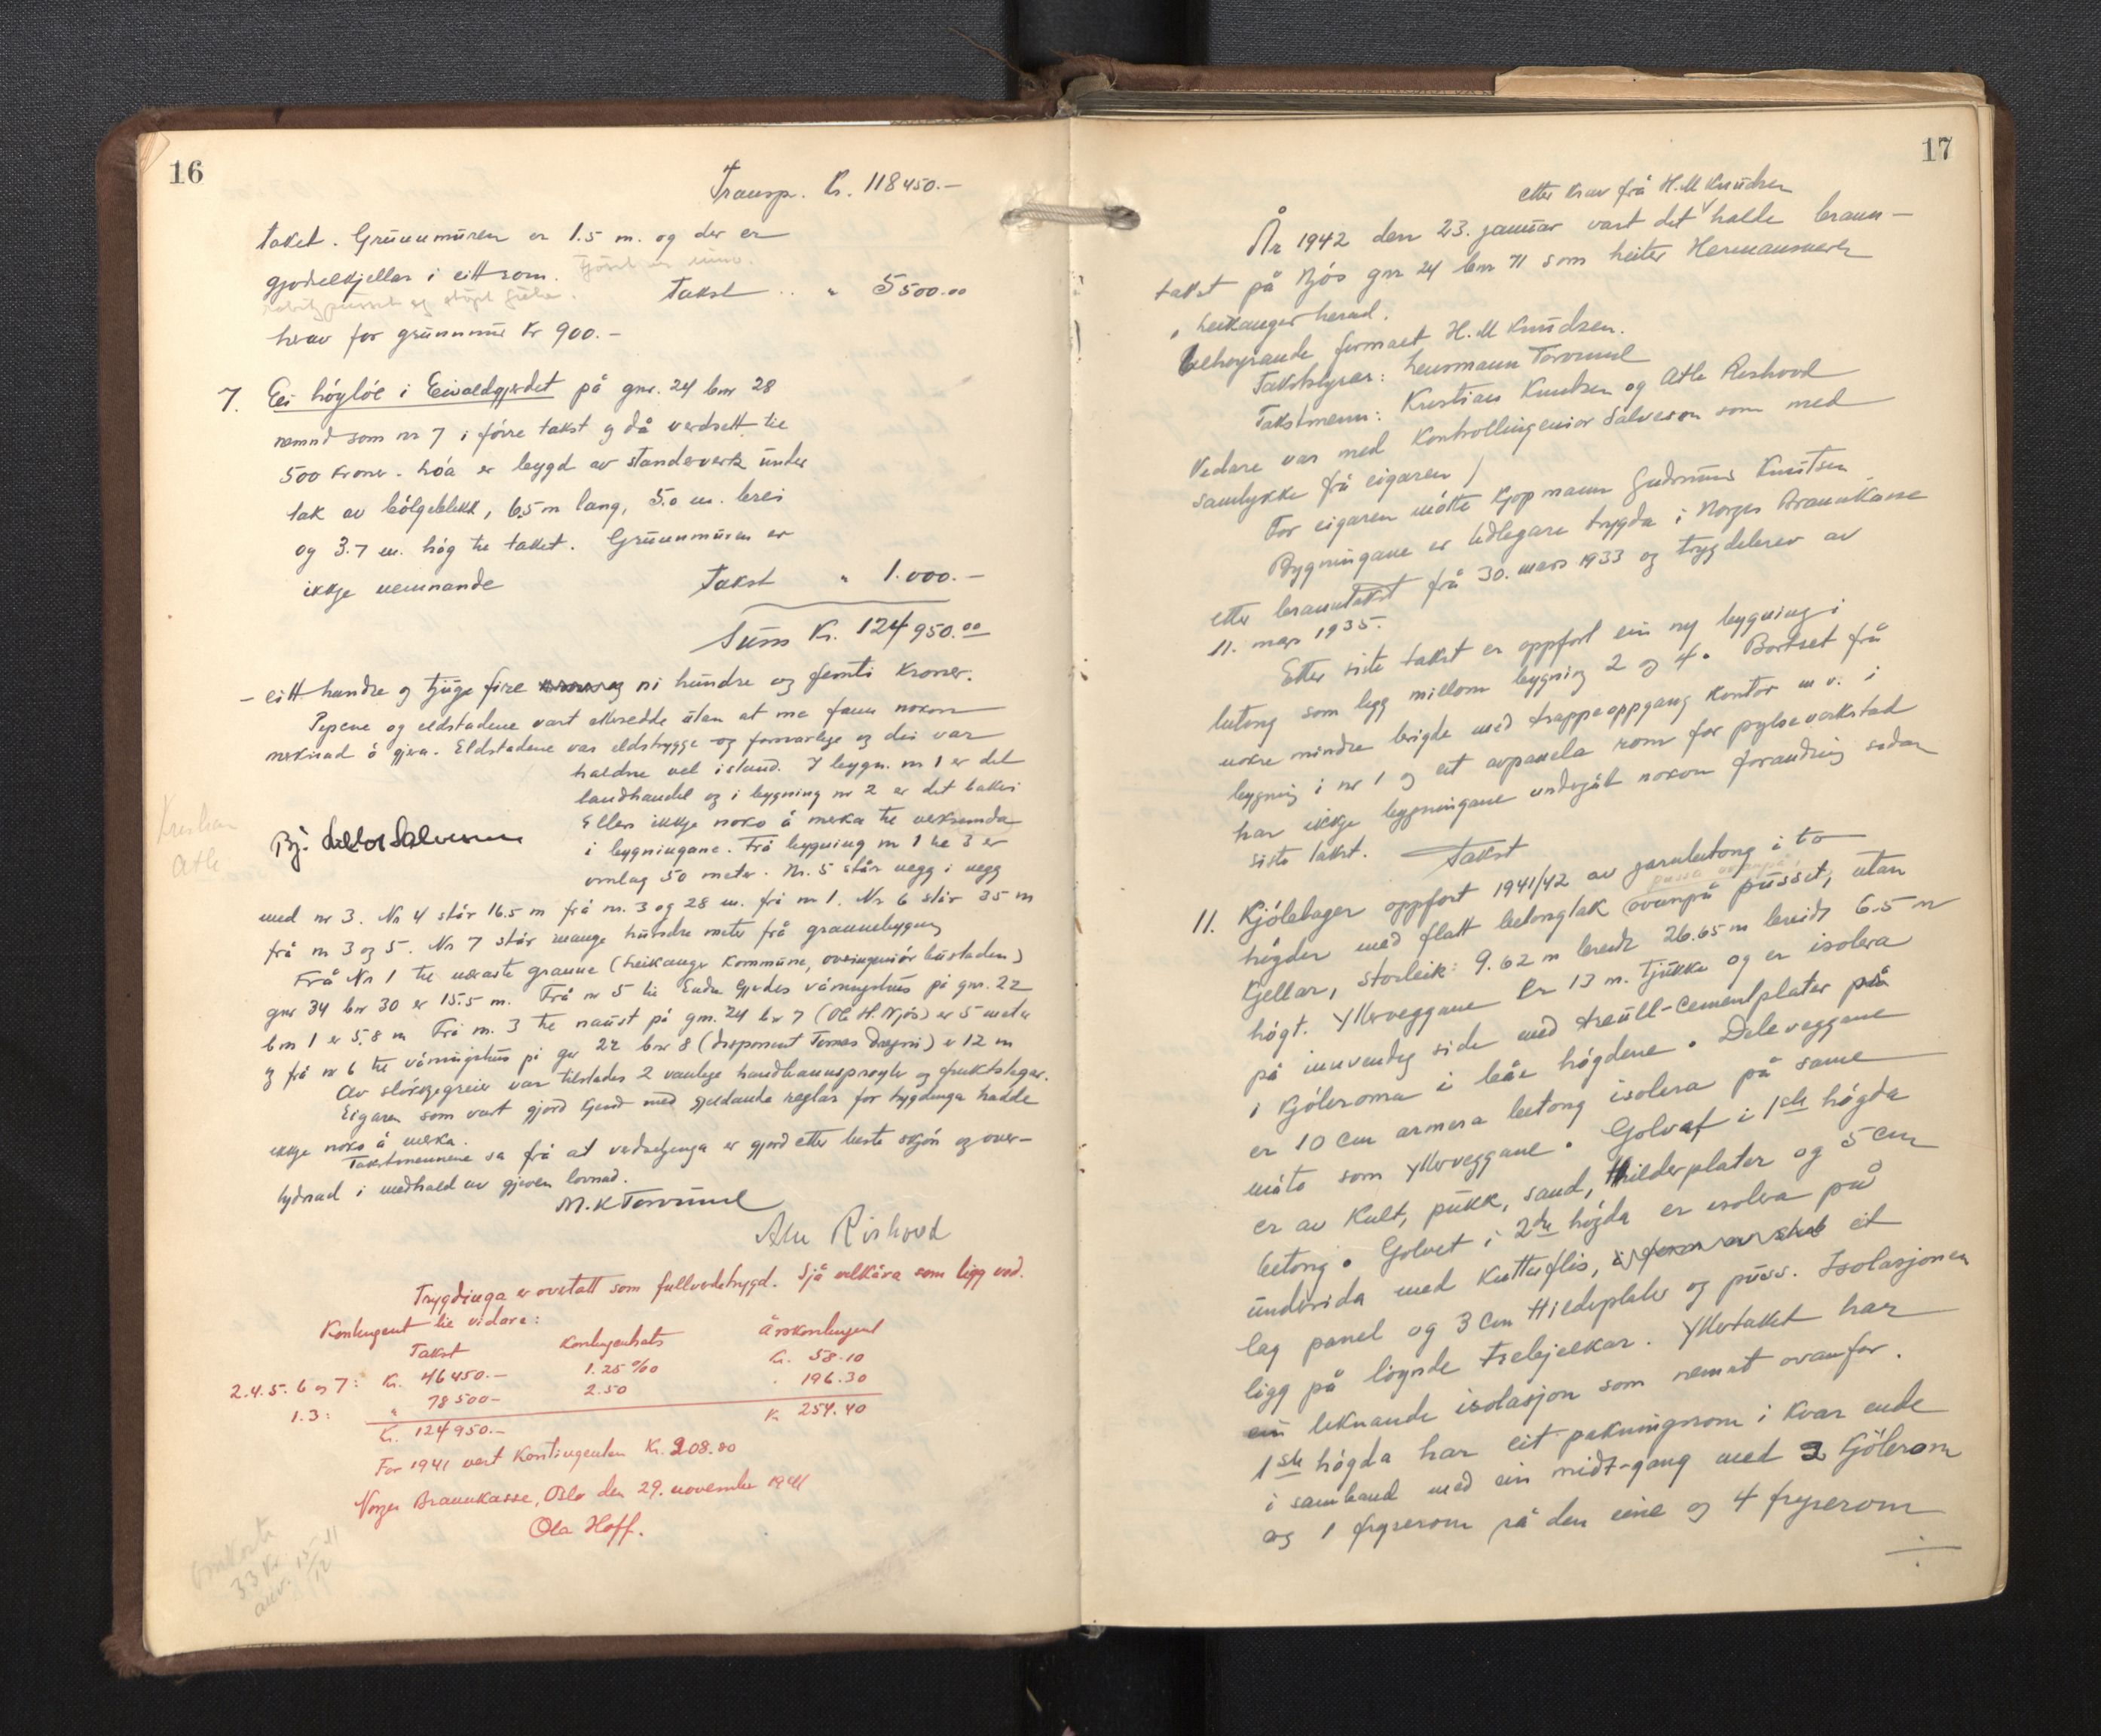 16
Transp. Kr. 118450.-
taket. Grunnmuren er 1.5 m. og der er
gjødelkjellar i eitt rom.
Takst .. " 5500.00
herav for grunnmur kr 900.-
7. Ei høyløe i Eivaldgjerdet på gnr. 24 bnr 28
nemnd som nr 7 i førre takst og då verdsett til
500 kroner. Løa er bygd av standarverk under
tak av bølgeblekk, 6.5 m lang, 5.0 m. brei
og 3.7 m. høg til taket. Grunnmuren er
ikkje nemnande Takst " 1.000.-
Sum Kr. 124950.00
- eitt hundre og tjuge fire ni hundre og femti kroner.
Pipene og eldstadene vart ettersedde utan at me fann nokon
merknad å gjera. Eldstadene var eldstrygge og forsvarlege og dei var
haldne vel i stand. I bygn. nr 1 er det
landhandel og i bygning nr 2 er det bakeri
Ellers ikkje noko å merka til verksemda
i bygningane. Frå bygning nr 1 til 3 er
omlag 50 meter. Nr. 5 står vegg i vegg
Kristian
Atle
med nr 3. Nr 4 står 16.5 m frå nr. 3 og 28 m. frå nr 1. Nr 6 står 35 m
frå nr 3 og 5. Nr 7 står mange hundre meter frå grannebygning
Frå Nr 1 til næraste granne (Leikanger Kommune, overingeniør bustaden)
gnr 34 bnr 30 er 15.5 m. Frå nr 5 til Endre Gjerdes våningshus på gnr. 22
bnr 1 er 5.8 m Frå nr. 3 til naust på gnr. 24 bnr 7 (Ole H. Njøs) er 5 meter
og frå nr 6 til våningshus på gnr 22 bnr 8 (disponent Tomas ) er 12 m
Av sløkkjegreier var tilstades 2 vanlege handbrannsprøyter og fruktsprøyter.
Eigaren som vart gjord kjend med gjeldande reglar for trygdinga hadde
ikkje noko å merka.
Takstmennene sa frå at verdsetjinga er gjord etter beste skjøn og over-
tydnad i medhald av gjeven lovnad.
M.K Torvund
Atle Rishovd
Trygdinga er overtatt som fullverdetrygd. Sjå vilkåra som ligg ved.
Kontingent til vidare:
Takst Kontingentsats Årskontingent
2.4.5.6 og 7: Kr. 46450.- 1.25 ‰ Kr. 58.10
1.3: " 78500- 2.50 " 196.30
Kr. 124950.- Kr 254.40
For 1941 vert Kontingenten Kr. 208.80
Norges Brannkasse, Oslo den 29. november 1941
Ola Hoff.
33 kr.
17
etter krav frå H.M Knudsen
År 1942 den 23. januar vart det halde brann-
takst på Njøs gnr 24 bnr 71 som heiter Hermansverk
i Leikanger herad.
tilhøyrande firmaet H.M Knudsen.
Takststyrar: Lensmann Torvund
Takstmenn: Kristian Knutsen og Atle Rishovd
Vidare var med Kontrollingeniør Salvesen som med
samtykke frå eigaren /
For eigaren møtte kjøpmann Gudmund Knutsen
Bygningane er tidlegare trygda i Norges Brannkasse
etter branntakst frå 30. mars 1933 og trygdebrev av
11. mars 1935.
Etter siste takst er oppført ein ny bygning i
betong som ligg millom bygning 2 og 4. Bortset frå
nokre mindre brigde med trappeoppgang kontor m v. i
bygning i nr 1 og eit avpanela rom for pylseverkstad
har ikkje bygningane undergått nokon forandring sidan
siste takst. Takst
11. Kjølelager oppført 1941/42 av jarnbetong i to
høgder med flatt betongtak ovanpå pusset, utan
kjellar, storleik: 9.62 m breidt 26.65 m breidt 6.5 m
høgt. Ytterveggane er 13 m. tjukke og er isolera
på innvendig side med treull-cementplater på
i kjøleroma i båe høgdene. Deleveggane
er 10 cm armera betong isolera på same
måte som ytterveggane. Golvet i 1ste høgda
er av kult, pukk, sand, Hilderplater og 5 cm
betong. Golvet i 2dre høgda er isolera på
undersida med kutterflis, eit
lag panel og 3 cm Hilderplater og puss. Isolasjonen
ligg på løynde trebjelkar. Yttertaket har
ein liknande isolasjon som nemnt ovanfor.
1ste høgda har eit pakningsrom i kvar ende
i samband med ein midt-gang med 3 kjølerom
og 1 fryserom på den eine og 4 fryserom